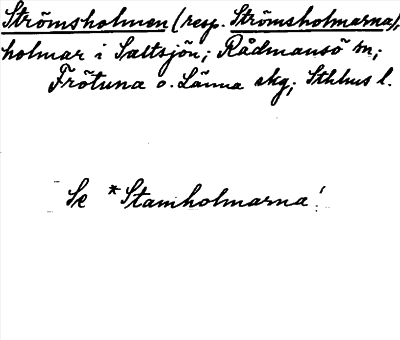 Strömsholmen (resp. Strömsholmarna),
holmar i Saltsjön; Rådmansö sn;
Frötuna o. Länna skg; Sthlms l.
Se *Stamholmarna!